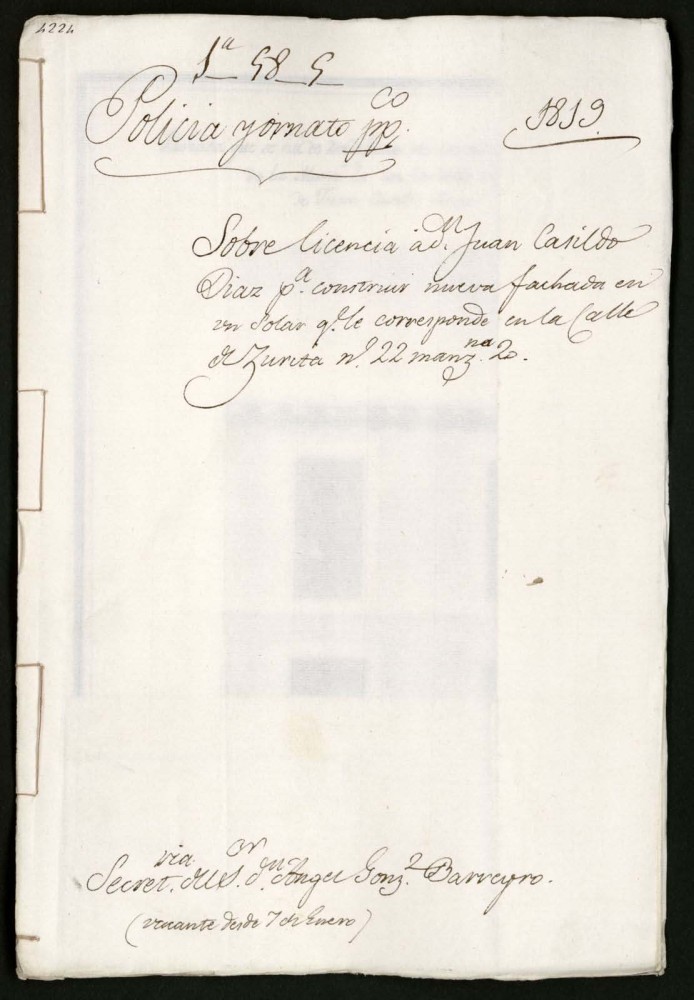 4224
1ª 58 5
Policia y ornato pp.co
1819
Sobre licencia á d.n Juan Casildo
Diaz p.a construir nueva fachada en
un solar q.e le corresponde en la Calle
de Zurita n.º 22 manz.na 20.
Secret.ria del S.or d.n Angel Gonz.z Barreyro.
(vacante desde 7 de Enero)